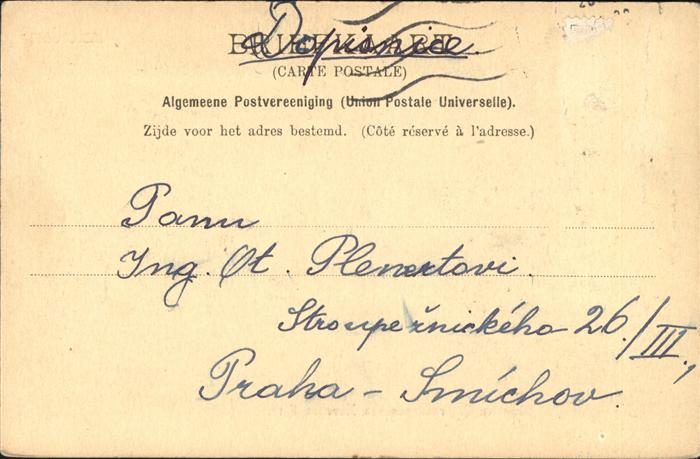 BRIEFKAART
Dopisnice.
(CARTE POSTALE)
Algemeene Postvereeniging (Union Postale Universelle).
Zijde voor het adres bestemd. (Côté réservé à l'adresse.)
Panu
Ing. Ot. Plenertovi.
Stroupežnického 26./III.,
Praha - Smíchov.